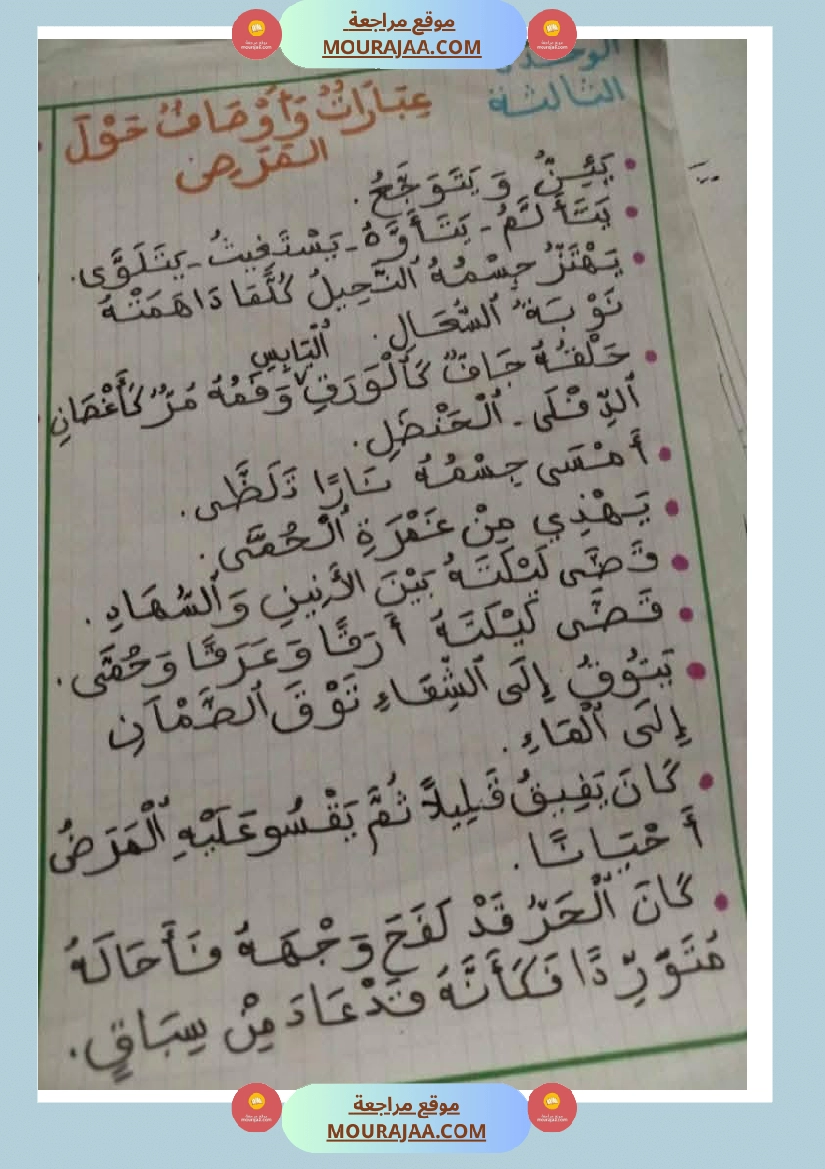 موقع مراجعة
MOURAJAA.COM
الوحدة
الثالثة
عِبَارَاتٌ وَأَوْصَافٌ حَوْلَ
المَرَضِ
يَئِنُّ وَيَتَوَجَّعُ.
يَتَأَلَّمُ - يَتَأَوَّهُ - يَسْتَغِيثُ - يَتَلَوَّى.
يَهْتَزُّ جِسْمُهُ النَّحِيلُ كُلَّمَا دَاهَمَتْهُ
نَوْبَةُ السُّعَالِ.
اليَابِسِ
حَلْقُهُ جَافٌّ كَالْوَرَقِ وَفَمُهُ مُرٌّ كَأَغْصَانِ
الدِّفْلَى - الْحَنْظَلِ.
أَمْسَى جِسْمُهُ نَارًا تَلَظَّى.
يَهْذِي مِنْ غَمْرَةِ الْحُمَّى.
قَضَّى لَيْلَتَهُ بَيْنَ الأَنِينِ وَالسُّهَادِ.
قَضَّى لَيْلَتَهُ أَرَقًا وَعَرَقًا وَحُمَّى.
يَتُوقُ إِلَى الشِّفَاءِ تَوْقَ الظَّمْآنِ
إِلَى الْمَاءِ.
كَانَ يَفِيقُ قَلِيلاً ثُمَّ يَقْسُو عَلَيْهِ الْمَرَضُ
أَحْيَانًا.
كَانَ الْحَرُّ قَدْ لَفَحَ وَجْهَهُ فَأَحَالَهُ
مُتَوَرِّدًا فَكَأَنَّهُ قَدْ عَادَ مِنْ سِبَاقٍ.
موقع مراجعة
MOURAJAA.COM